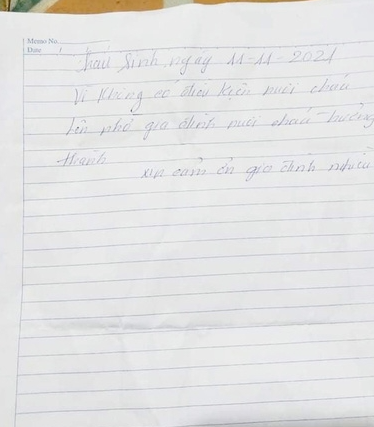 Memo No.
Date / /
Cháu Sinh ngày 11-11-2021
Vì không có điều kiện nuôi cháu
lên nhờ gia đình nuôi cháu trưởng
thành
xin cảm ơn gia đình nhiều